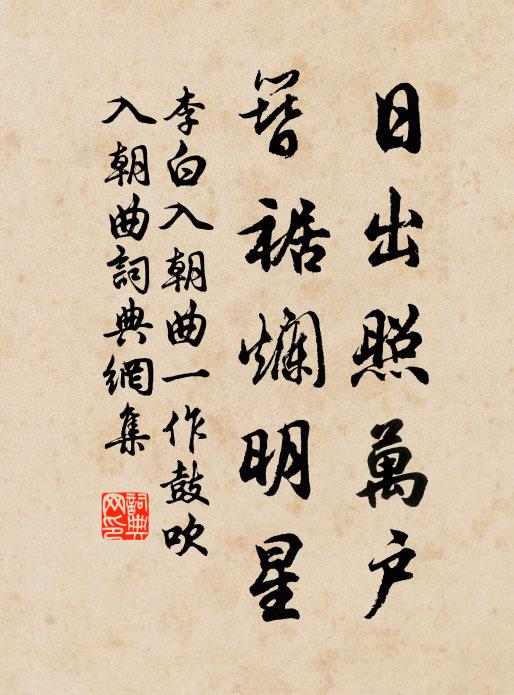 日出照萬户
簪裾爛明星
李白入朝曲一作鼓吹
入朝曲詞典網集
詞典
网印